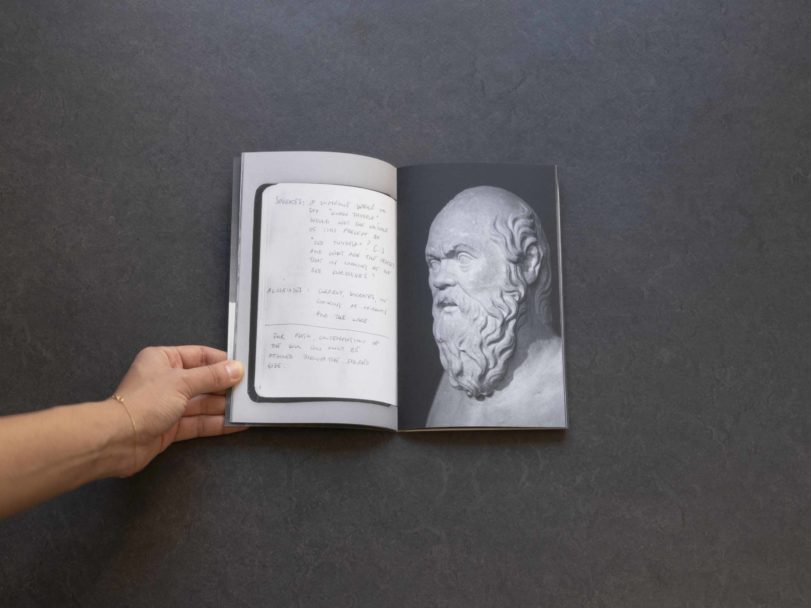 SOCRATES: IF SOMEONE WERE TO
SAY "KNOW THYSELF"
WOULD NOT THE NATURE
OF THIS PRECEPT BE
"SEE THYSELF"? (...)
AND WHAT ARE THE OBJECTS
THAT IN LOOKING AT WE
SEE OURSELVES?
ALCIBIADES: CLEARLY, SOCRATES, IN
LOOKING AT MIRRORS
AND THE LIKE.
FOR PLATO, CONTEMPLATION OF
THE SOUL CAN ONLY BE
ATTAINED THROUGH THE
SIDE.